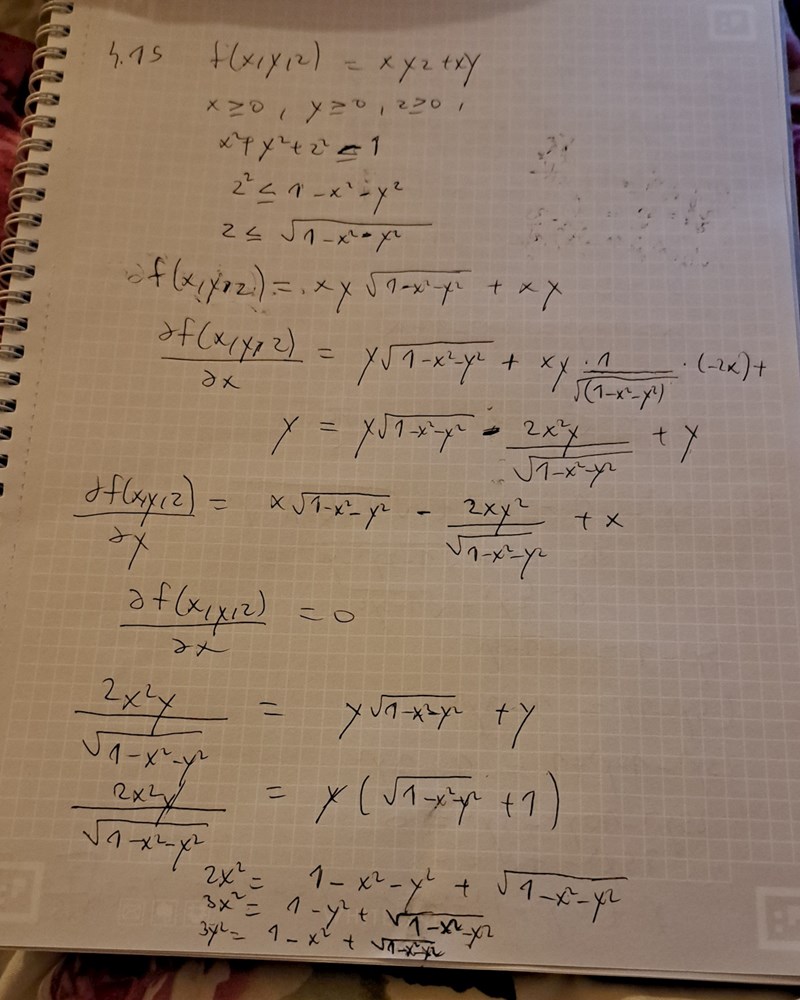 4.15 f(x,y,z) = xyz + xy
x ≥ 0, y ≥ 0, z ≥ 0,
x² + y² + z² ≤ 1
z² ≤ 1 - x² - y²
z ≤ √(1-x²-y²)
∂f(x,y,z) = xy √(1-x²-y²) + xy
∂f(x,y,z)/∂x = y√(1-x²-y²) + xy · 1/√(1-x²-y²) · (-2x) +
y = y√(1-x²-y²) - 2x²y/√(1-x²-y²) + y
∂f(x,y,z)/∂y = x√(1-x²-y²) - 2xy²/√(1-x²-y²) + x
∂f(x,y,z)/∂x = 0
2x²y/√(1-x²-y²) = y√(1-x²-y²) + y
2x²y/√(1-x²-y²) = y(√(1-x²-y²) + 1)
2x² = 1 - x² - y² + √(1-x²-y²)
3x² = 1 - y² + √(1-x²-y²)
3y² = 1 - x² + √(1-x²-y²)